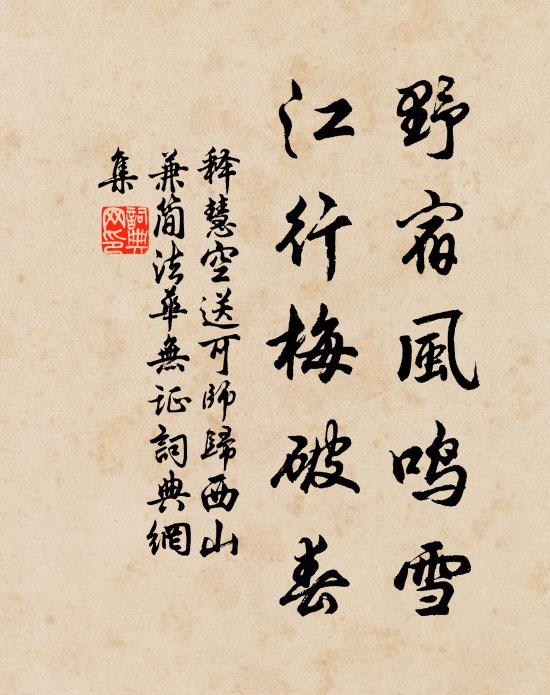 野宿風鳴雪
江行梅破春
释慧空送可师歸西山
兼简法華無证詞典網
集
詞典網印